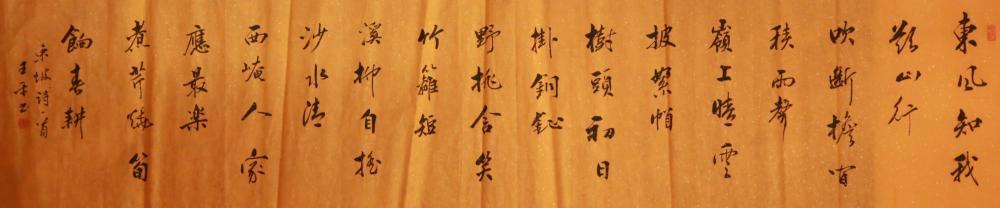 東風知我
欲山行
吹斷檐間
積雨聲
嶺上晴雲
披絮帽
樹頭初日
掛銅鉦
野桃含笑
竹籬短
溪柳自搖
沙水清
西崦人家
應最樂
煮芹燒筍
餉春耕
東坡詩一首